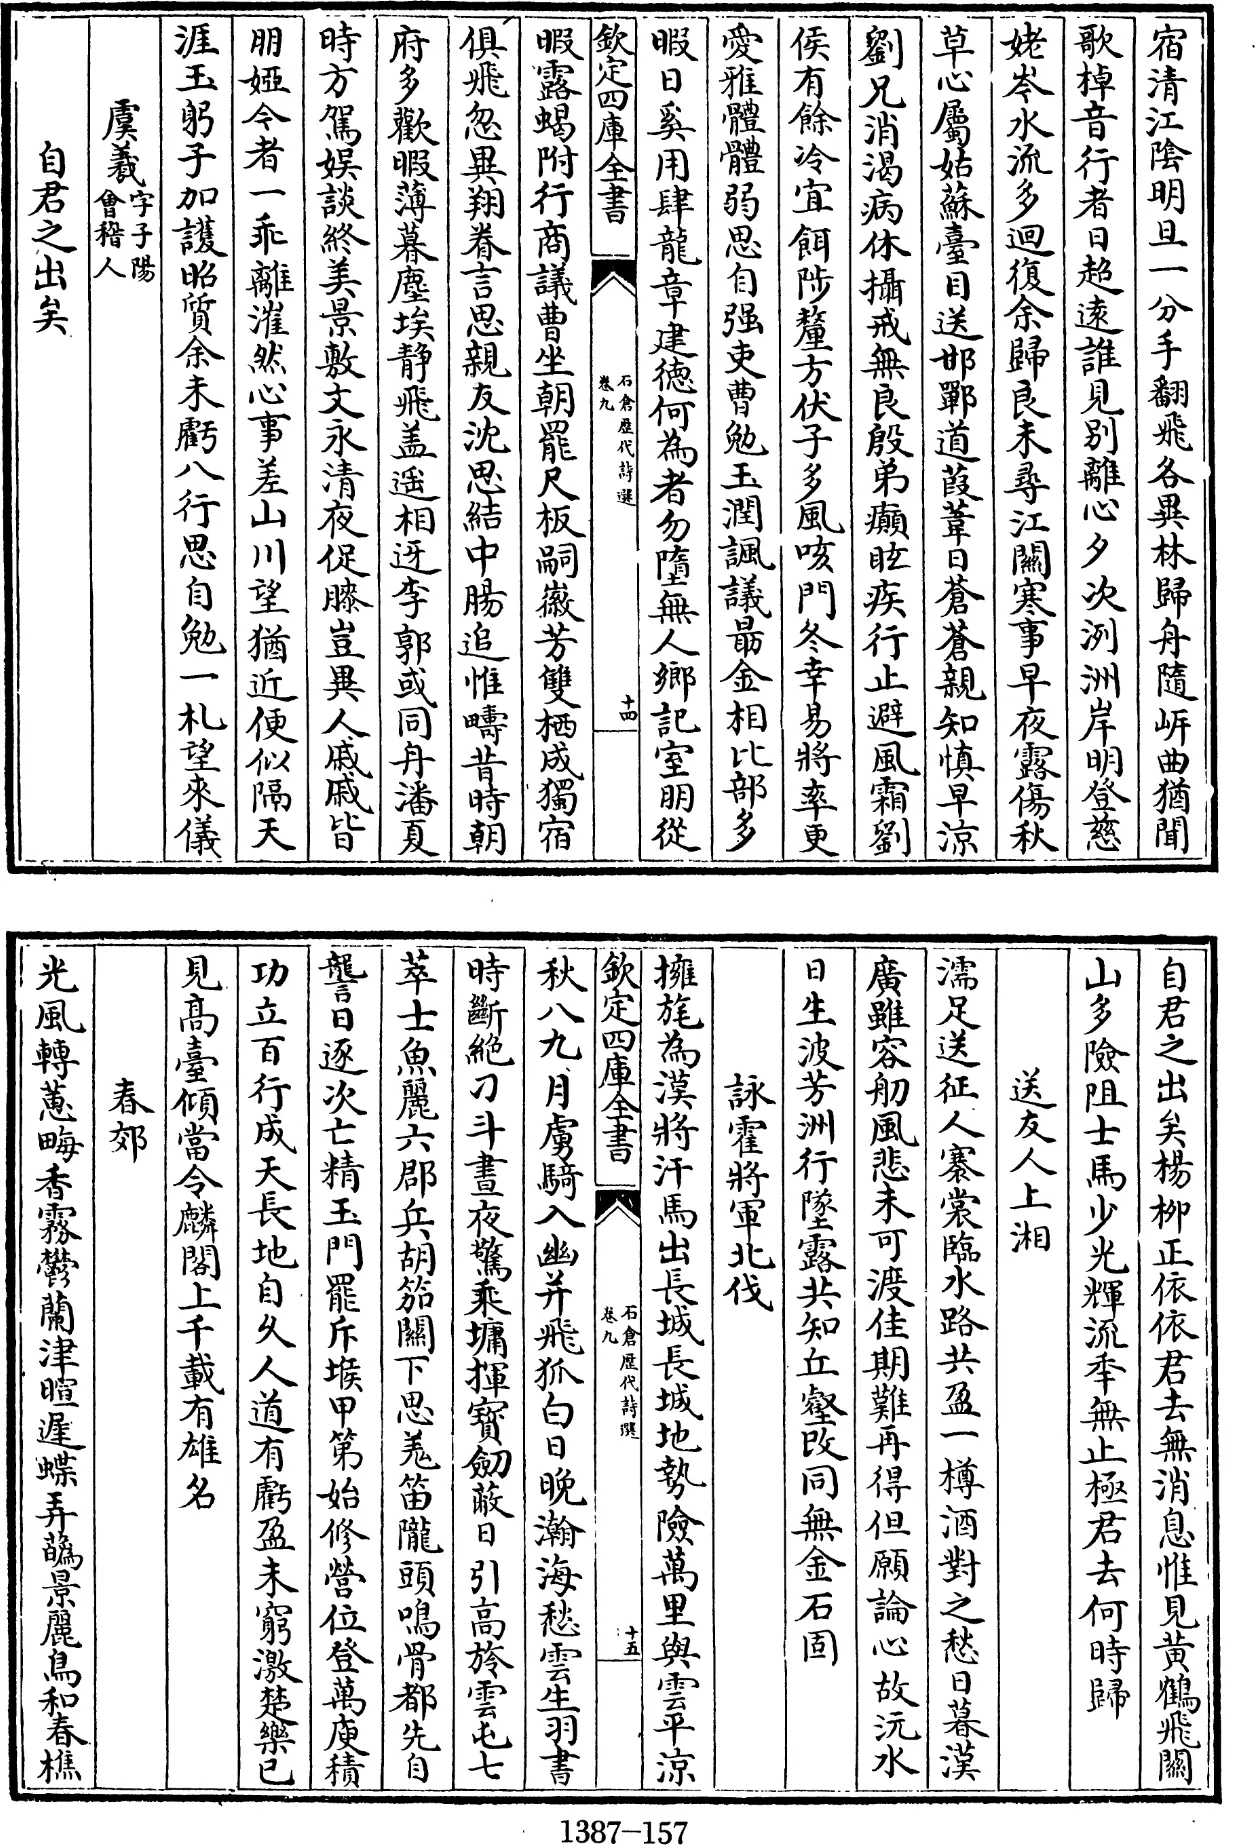 宿清江陰明旦一分手翻飛各異林歸舟隨岍曲猶聞
歌棹音行者日超遠誰見別離心夕次洌洲岸明登慈
姥岑水流多迴復余歸良未尋江關寒事早夜露傷秋
草心屬姑蘇臺目送邯鄲道葭葦日蒼蒼親知慎早涼
劉兄消渴病休攝戒無良殷弟癲眩疾行止避風霜劉
侯有餘冷宜餌陟釐方伏子多風咳門冬幸易將率更
愛雅體體弱思自强吏曹勉玉潤諷議最金相比部多
暇日奚用肆龍章建德何為者勿墮無人鄉記室朋從
欽定四庫全書
石倉歷代詩選
卷九
十四
暇露蝎附行商議曹坐朝罷尺板嗣徽芳雙栖成獨宿
俱飛忽異翔眷言思親友沈思結中腸追惟疇昔時朝
府多歡暇薄暮塵埃靜飛盖遥相迓李郭或同舟潘夏
時方駕娯談終美景敷文永清夜促膝豈異人戚戚皆
朋婭令者一乖離漼然心事差山川望猶近便似隔天
涯玉躬子加護昭質余未虧八行思自勉一札望來儀
虞羲字子陽
會稽人
自君之出矣
自君之出矣楊柳正依依君去無消息惟見黄鶴飛關
山多險阻士馬少光輝流年無止極君去何時歸
送友人上湘
濡足送征人褰裳臨水路共盈一樽酒對之愁日暮漢
廣雖容舠風悲未可渡佳期難再得但願論心故沅水
日生波芳洲行墜露共知丘壑改同無金石固
詠霍將軍北伐
擁旄為漢將汗馬出長城長城地勢險萬里與雲平涼
欽定四庫全書
石倉歷代詩選
卷九
十五
秋八九月虜騎入幽并飛狐白日晚瀚海愁雲生羽書
時斷絶刁斗晝夜驚乘墉揮寶劒蔽日引高旍雲屯七
萃士魚麗六郡兵胡笳關下思羗笛隴頭鳴骨都先自
讋日逐次亡精玉門罷斥堠甲第始修營位登萬庾積
功立百行成天長地自久人道有虧盈未窮激楚樂已
見高臺傾當令麟閣上千載有雄名
春郊
光風轉蕙畮香霧鬱蘭津暄遲蝶弄蘤景麗鳥和春樵
1387-157